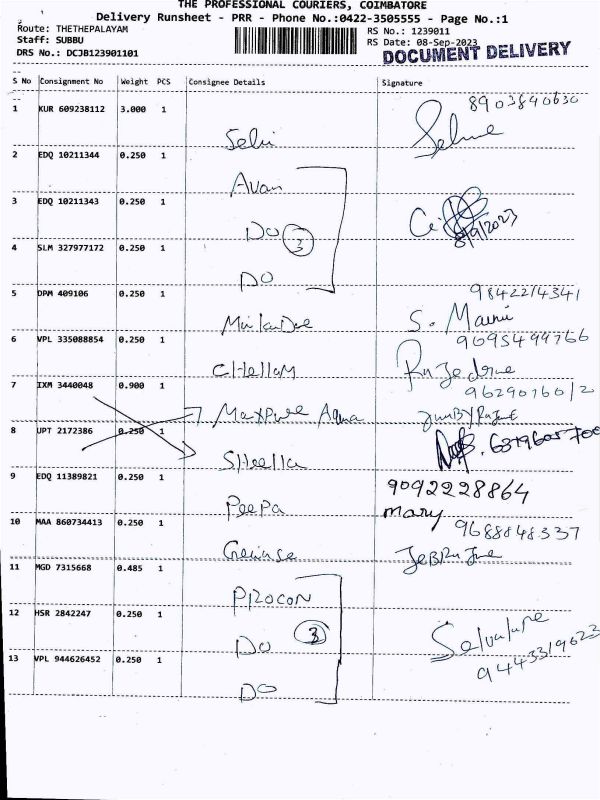 THE PROFESSIONAL COURIERS, COIMBATORE
Delivery Runsheet - PRR - Phone No.:0422-3505555 - Page No.:1
Route: THETHEPALAYAM RS No.: 1239011
Staff: SUBBU RS Date: 08-Sep-2023
DRS No.: DCJB123901101 DOCUMENT DELIVERY
S No Consignment No Weight PCS Consignee Details Signature
1 KUR 609238112 3.000 1 8903840630
Selvi
2 EDQ 10211344 0.250 1
Avan
3 EDQ 10211343 0.250 1
DO 3 8/9/2023
4 SLM 327977172 0.250 1
DO
5 DPM 409106 0.250 1 9842214341
S.
6 VPL 335088854 0.250 1 9095499766
CHellaM
7 IXM 3440048 0.900 1 9629076012
Maxpure Aqua
8 UPT 2172386 0.250 1
SHeella
9 EDQ 11389821 0.250 1 9092228864
PeePa mary
10 MAA 860734413 0.250 1 9688848337
11 MGD 7315668 0.485 1
PROCON
12 HSR 2842247 0.250 1
DO 3
13 VPL 944626452 0.250 1 9443319623
DO